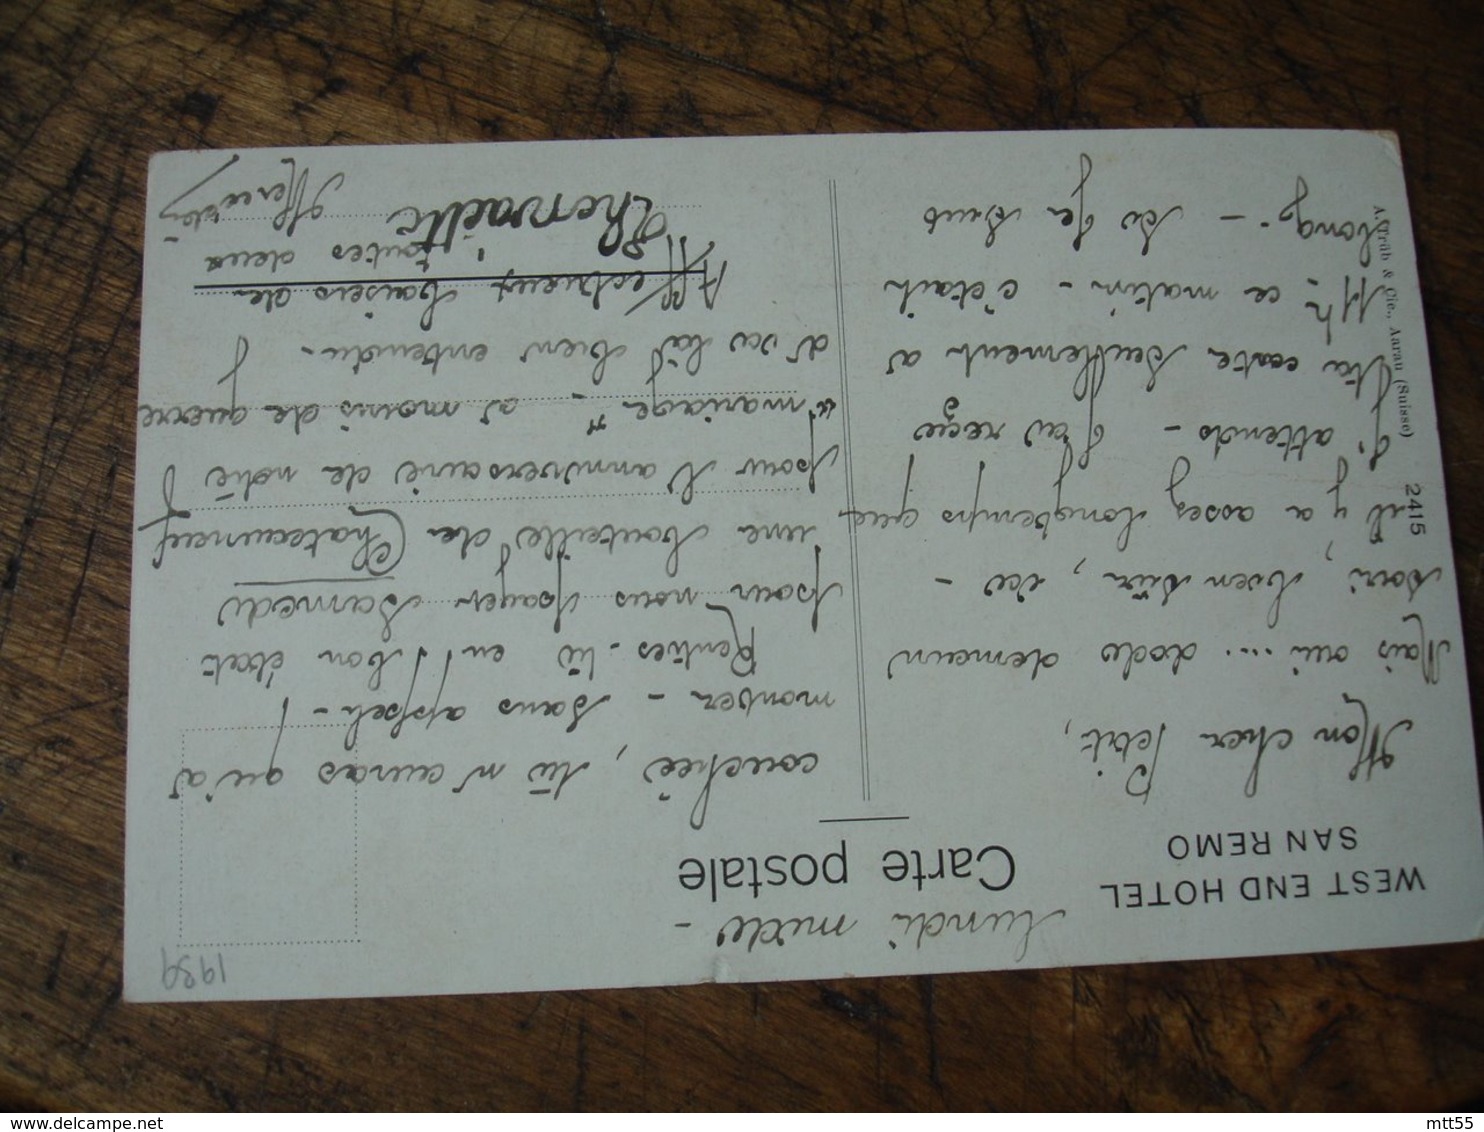 1939
lundi midi -
WEST END HOTEL
SAN REMO
Carte postale
Mon cher Petit,
Mais oui .... dodo demain
soir, bien sûr, ici -
il y a assez longtemps que
j'attends - j'ai reçu
ta carte seulement à
11h ce matin - c'était
long - si je suis
couchée, tu n'auras qu'à
monter - sans appel -
Rentres-tu en bon état
pour nous payer samedi
une bouteille de Chateauneuf
pour l'anniversaire de notre
"mariage" - à moins de guerre
d'ici là bien entendu -
Affectueux baisers de
toutes deux
Mercedes
A. Trüb & Cie., Aarau (Suisse)
2415
mtt55